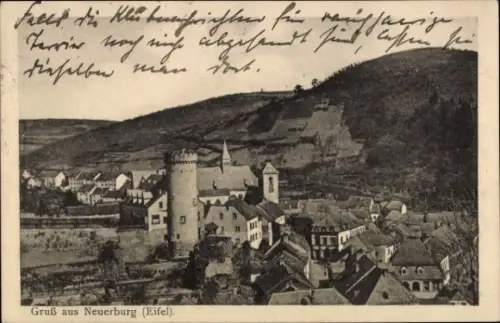 Falls die Klubnachrichten für rauhaarige
Terrier noch nicht abgesandt sind, lassen Sie
dieselben man dort.
Gruß aus Neuerburg (Eifel).